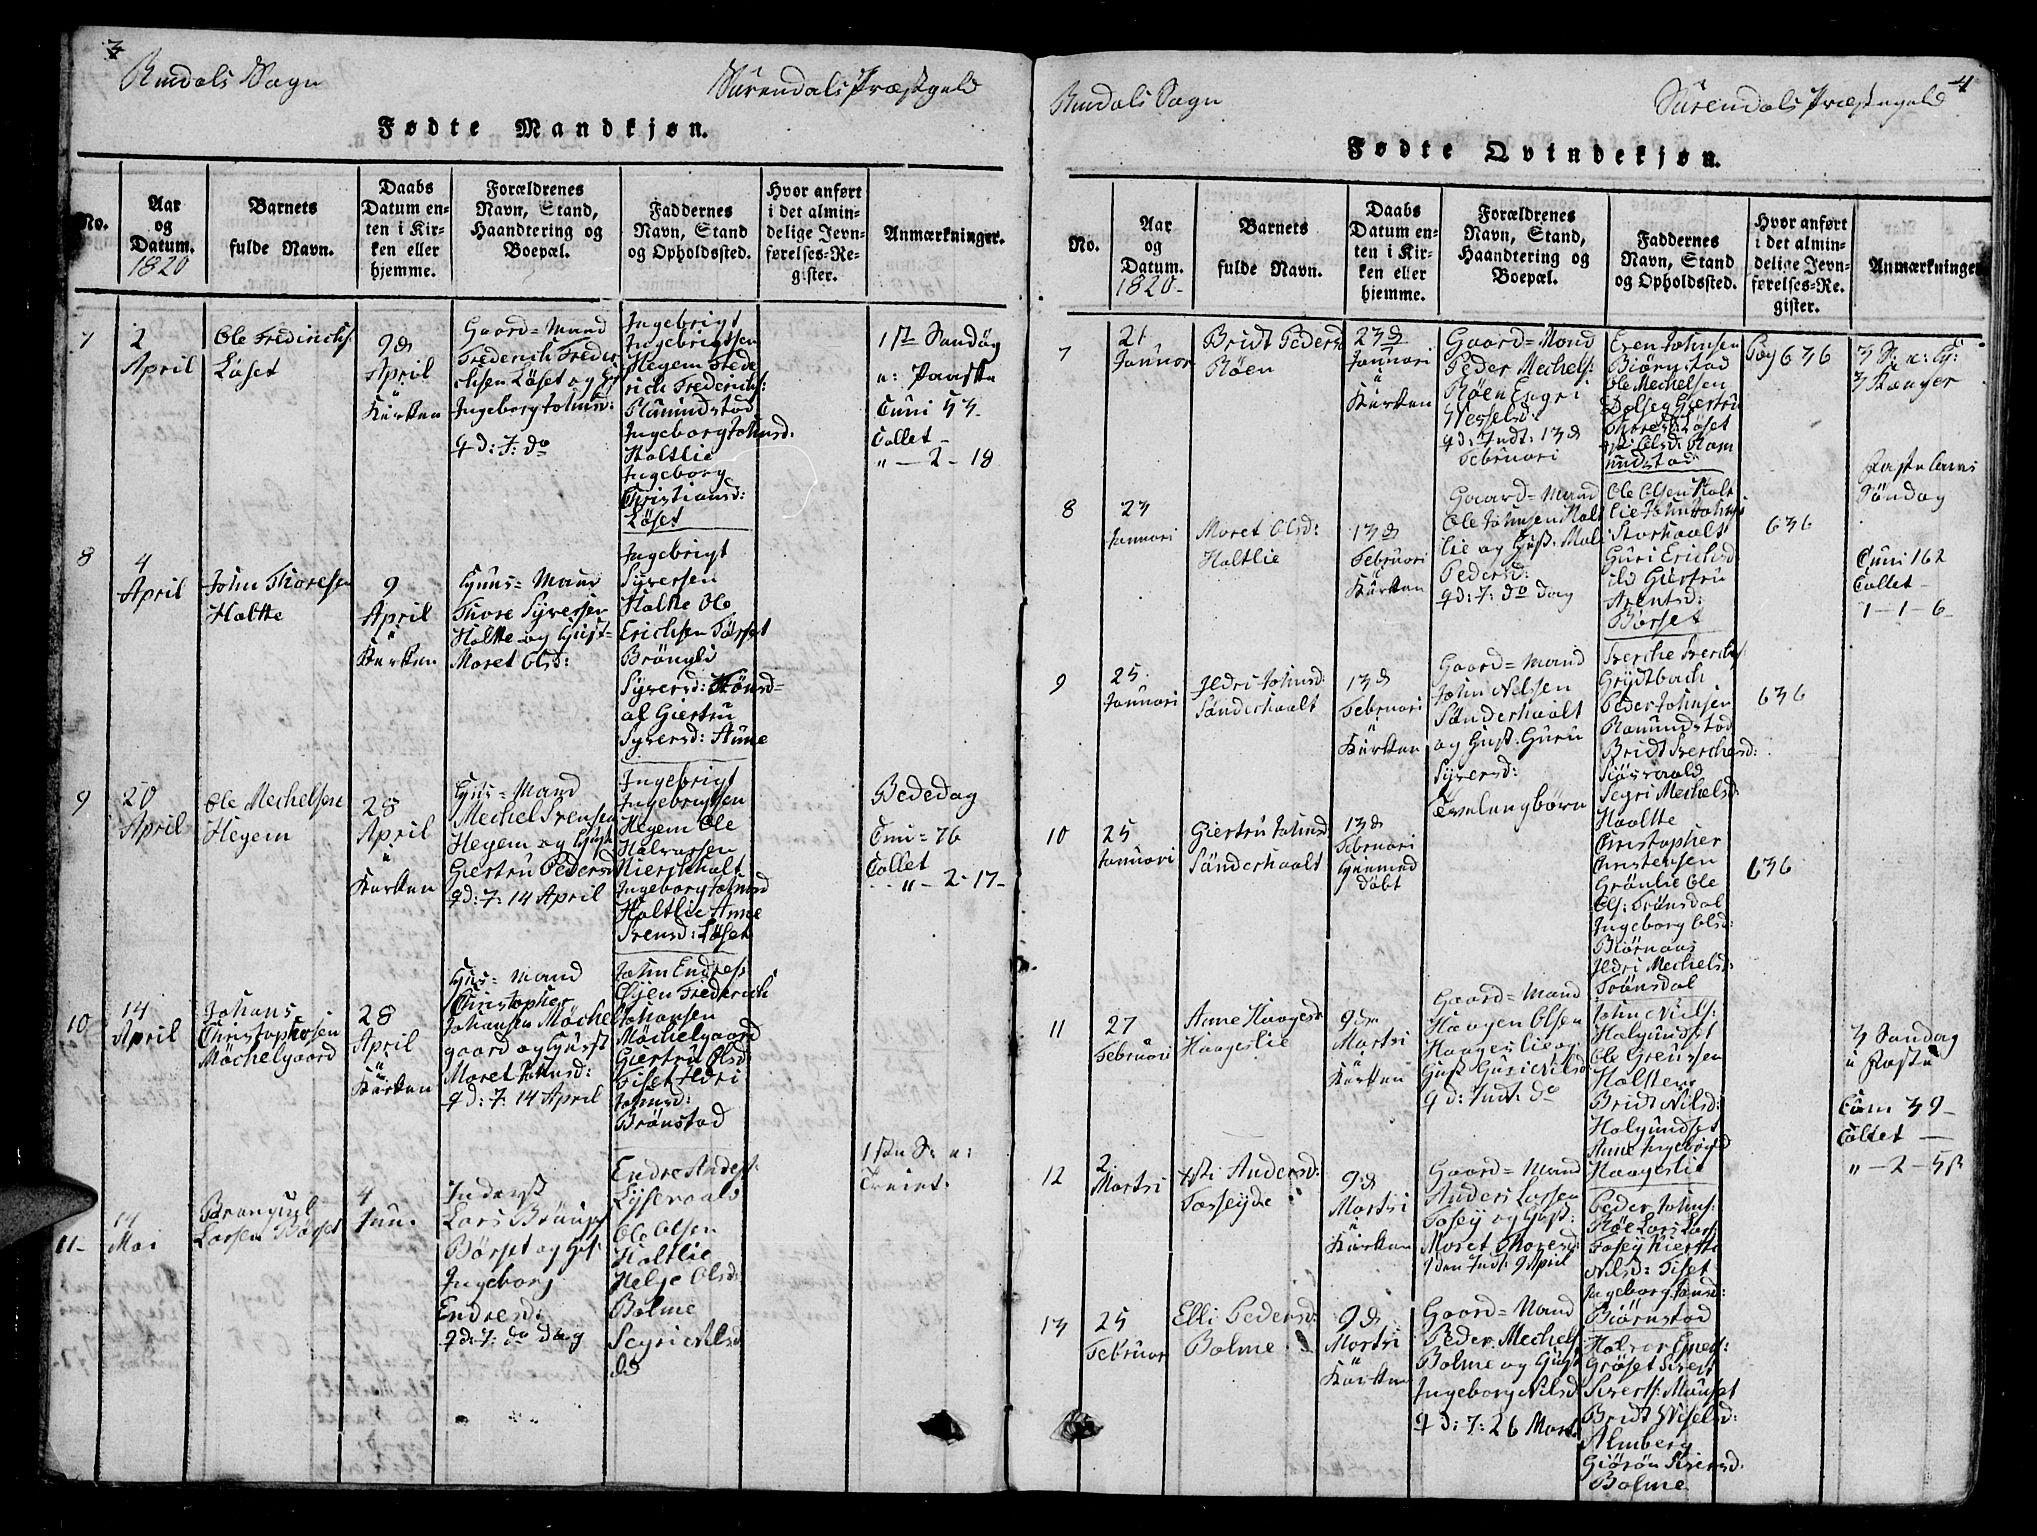 3
Rindals Sogn
Surendals Præstgeld
Fødte Mandkjøn.
No.
Aar
og
Datum.
1820
Barnets
fulde Navn.
Daabs
Datum en-
ten i Kir-
ken eller
hjemme.
Forældrenes
Navn, Stand,
Haandtering og
Boepæl.
Faddernes
Navn, Stand
og Opholdssted.
Hvor anført
i det almin-
delige Jevn-
førelses-Re-
gister.
Anmærkninger.
7
2
April
Ole Friderichs:
Løset
9d
April
Kirken
Gaard=Mand
Frederich Freder
ichsen Løset og
Ingeborg Johnsd:
Ingebrigt
Ingebrigtsen
Hegem Frede
rich Frederichs:
Romundstad
Ingeborg Johnsd:
Holtlie
Ingeborg
Christiansd:
Løset
1ste Søndag
e: Paaske
Cuni 53
Collet
" - 2 - 18
8
4
April
John Thoresen
Holtte
9
April
Kirken
Huus=Mand
Thore Syversen
Holtte og Hust=
Maret Olsd:
Ingebrigt
Syversen
Holtte Ole
Erichsen Tørset
Brøngld
Syversd: Trønsd=
al Giertru
Syversd: Aune
9
20
April
Ole Mechelsen
Hegem
28
April
Kirken
Huus=Mand
Mechel Svensen
Hegem og Hust
Giertru Pedersd
qd: 7: 14 April
Ingebrigt
Ingebrigtsen
Hegem Ole
Halvorsen
Nierschalt
Ingeborg Johnsd
Holtlie Anne
Svensd: Løset
Bededag
Cuni = 76
Collet
" - 2 - 17 -
10
14
April
Johans
Christophersen
Møchelgaard
28
April
Kirken
Huus=Mand
Christopher
Johansen Møchel
gaard og Hust
Maret Johnsd:
qd: 7: 14 April
John Endres
Øyen Friderich
Johansen
Møchelgaard
Giertru Olsd
Tiset Ildri
Johnsd:
Brønstad
11
14
Mai
Larsen Børset
4
Juni
Inderst
Lars
Børset og
Ingeborg
Endresd:
qd: 7: do dag
Endre Anders:
Ole Olsen
Holtlie
Helge Olsd:
Bolme
Segri Nilsd
1ste S: e:
Trinit:
4
Rindals Sogn
Surendals Præstegeld
Fødte Qvindekjøn.
No.
Aar
og
Datum.
1820-
Barnets
fulde Navn.
Daabs
Datum en-
ten i Kir-
ken eller
hjemme.
Forældrenes
Navn, Stand,
Haandtering og
Boepæl.
Faddernes
Navn, Stand
og Opholdssted.
Hvor anført
i det almin-
delige Jevn-
førelses-Re-
gister.
Anmærkninger
7
21
Januar
Bridt Pedersd
Røen
23d
Januari
Kirken
Gaard=Mand
Peder Mechels:
Røen Engri
Wesselsd:
qd: Indt: 13d
Februari
Even Johnsen
Biørnstad
Ole Mechelsen
Dalsey Giertru
Thoresd: Løset
Nilsd: Rom
undstad
Pag 636
3 S: e: H:
3 Konger
8
23
Januari
Maret Olsd:
Holtlie
13d
Februari
Kirken
Gaard=Mand
Ole Johnsen Holt
lie og Hust. Mali
Pedersd:
qd: 7: do dag
Ole Olsen Holt
lie John Johns
Storholt
Guri Erichsd
Giertru
Arentsd:
Børset
636
Fastelavns
Søndag
Cuni 162
Collet
1 - 1 - 6 -
9
25
Januari
Ildri Johnsd:
Sønderhaalt
13d
Februari
Kirken
Gaard=Mand
John Nilsen
Sønderhaalt
og Hust. Guru
Syversd:
Tvelingbørn
Sverche Sverchs:
Grydtbach
Peder Johnsen
Romundstad
Bridt Sverchesd:
Siøsvaald
Segri Mechelsd
Haaltte
636
10
25
Januari
Giertru Johnsd
Sønderhaalt
13d
Februari
Hiemmed
døbt
Christopher
Christensen
Grønlie Ole
Ols: Trønsdal
Ingeborg Olsd:
Biørnaas
Ildri Mechelsd:
Trønsdal
636
11
27
Februari
Anne Haagensd
Haagslie
9d
Martri
Kirken
Gaard=Mand
Haagen Olsen
Haagslie og
Hust Guri Nilsd
qd: Indt: do
John Niels:
Halgundset
Ole Greussen
Holtten
Bridt Nilsd:
Halgundset
Anne Ingebrigtd
Haagslie
3 Søndag
i Faste
Com 39 -
Collet -
" - 2 - 5 ß
12
2
Martri
Andersd:
Fosseyde
9d
Martri
Kirken
Gaard=Mand
Anders Larsen
Fosey og Hust:
Maret Thoresd:
den Indt: 9 April
Peder Johns:
Røe Lars Lars
Fosey Kierstti
Nilsd: Tiset
Ingeborg Johnsd:
Biørnstad
13
25
Februar
Elli Pedersd
Bolme
9d
Martri
Kirken
Gaard=Mand
Peder Mechels
Bolme og Hust
Ingeborg Nilsd
qd: 7: 26 Mart.
Halvor
Grøset Sivert
Siverts: Mauset
Bridt Nilsd:
Almberg
Giørøn Siversd:
Bolme